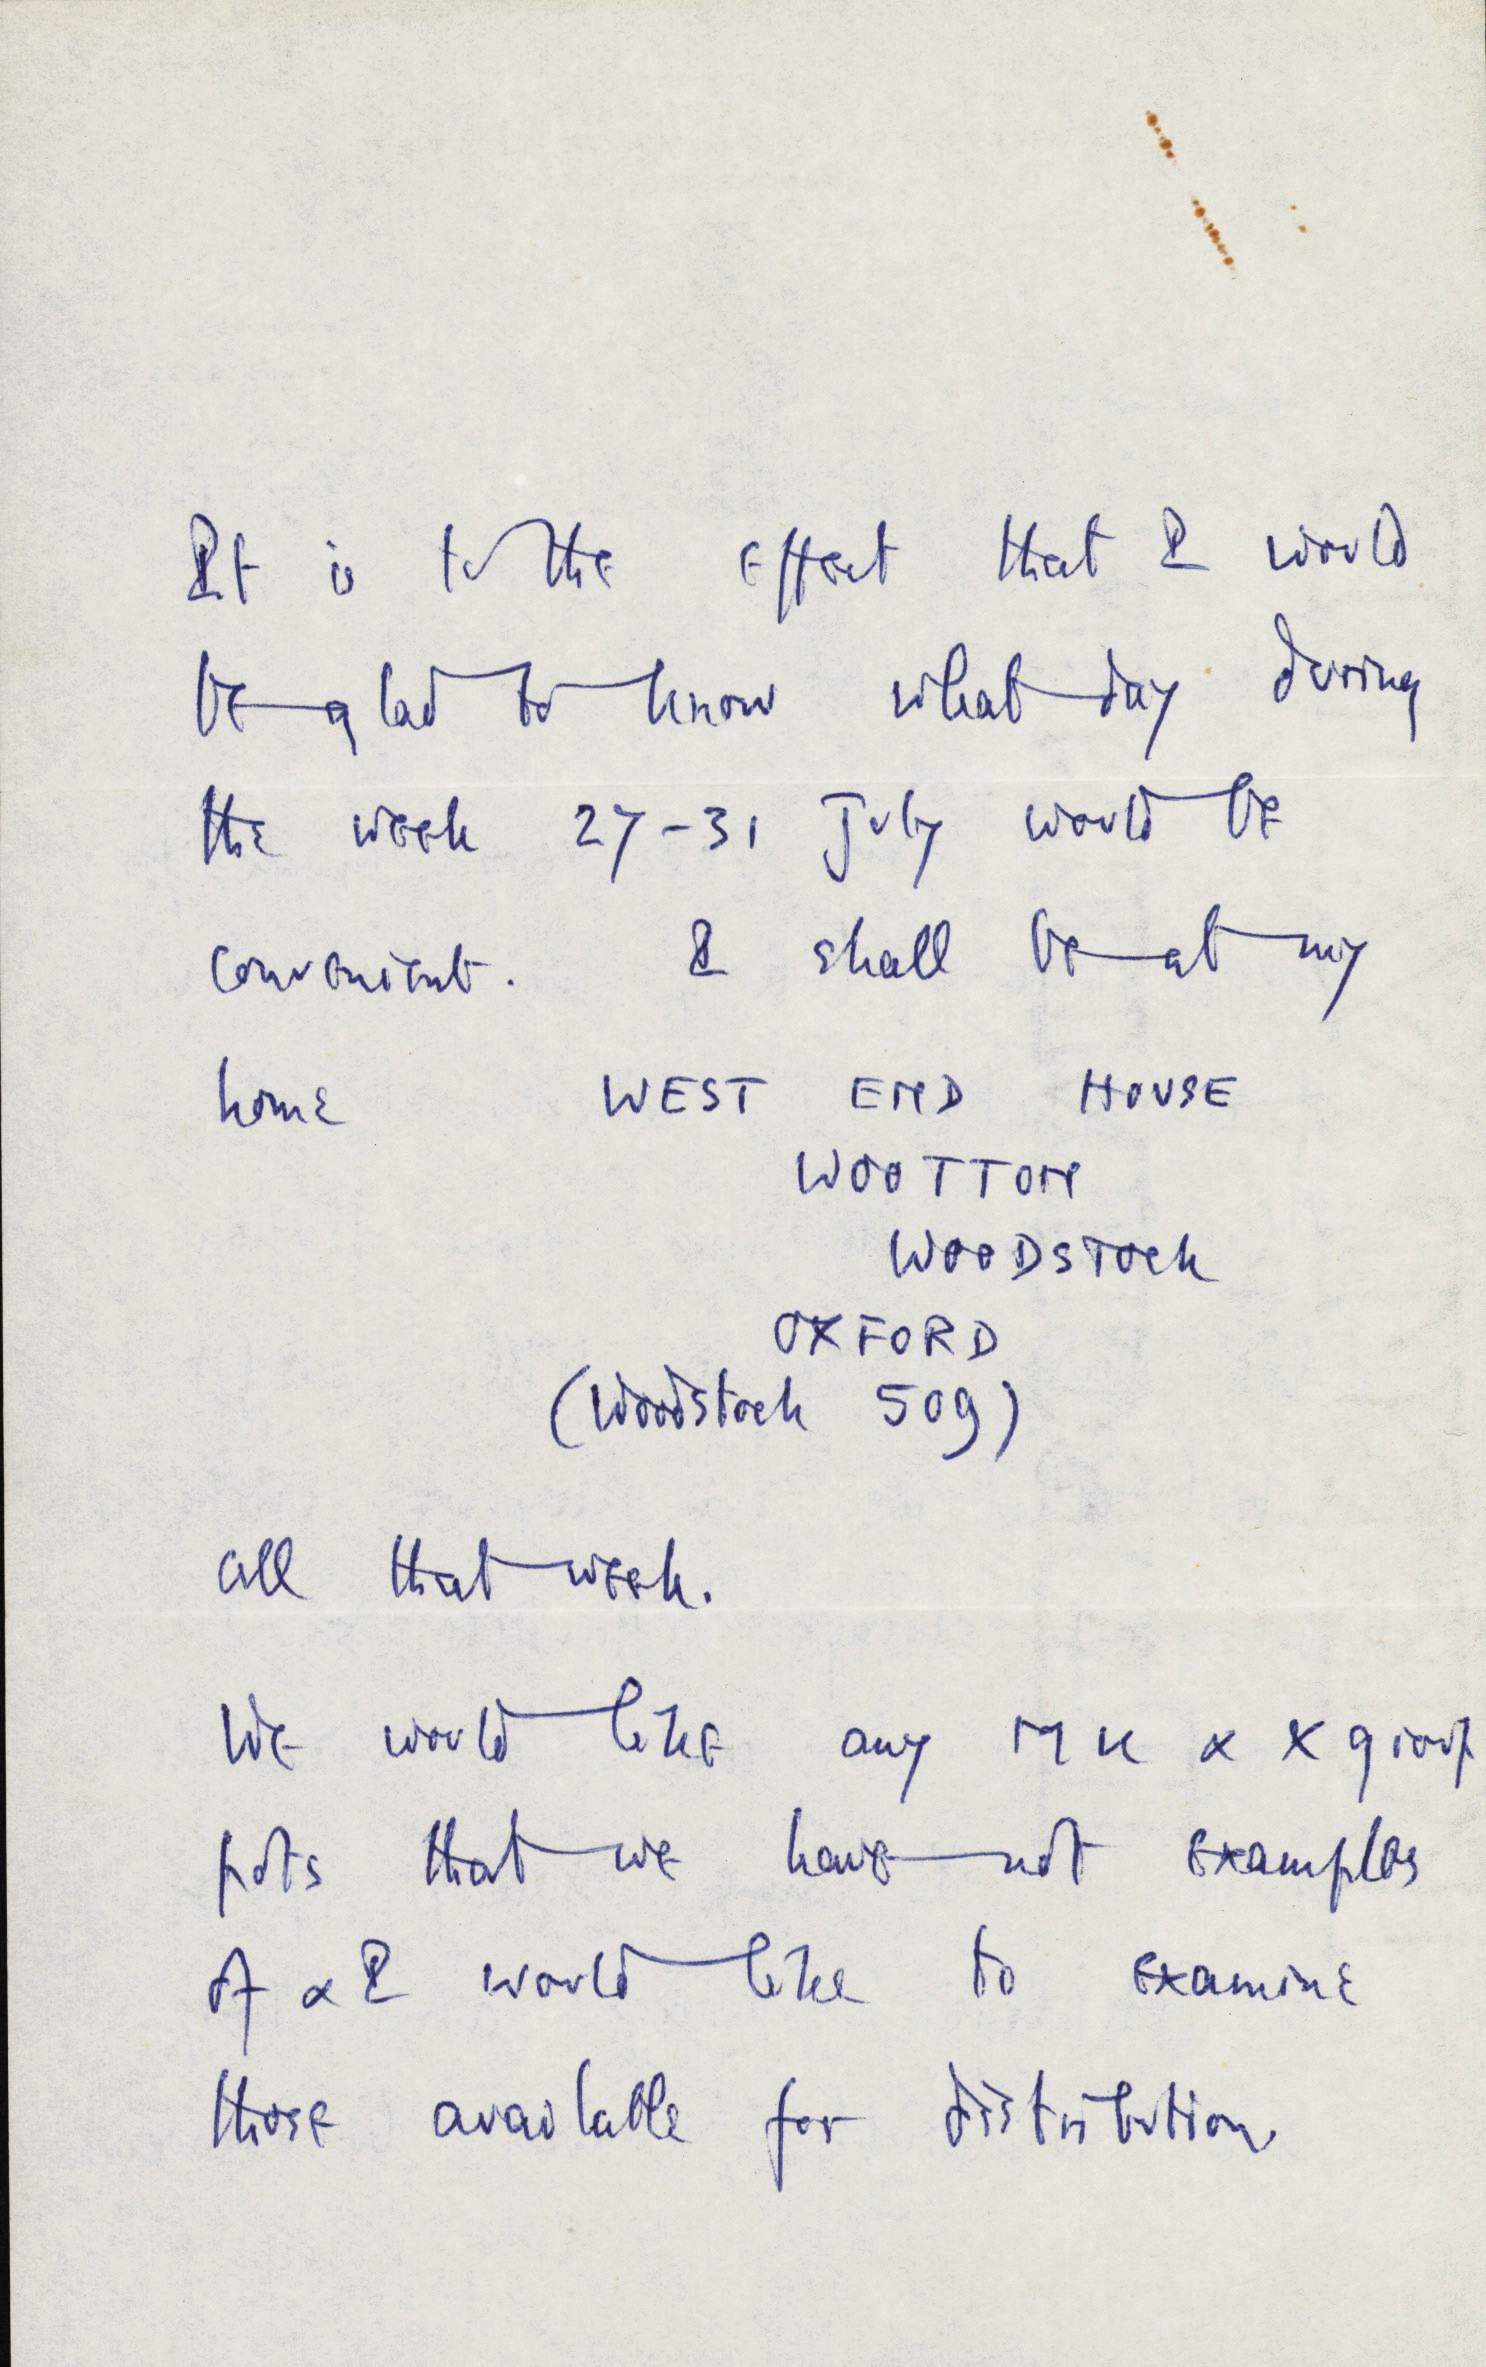 It is to the effect that I would
be glad to know what day during
the week 27-31 July would be
convenient. I shall be at my
home WEST END HOUSE
WOOTTON
WOODSTOCK
OXFORD
(Woodstock 509)
all that week.
We would like any MK & X group
pots that we have not examples
of & I would like to examine
those available for distribution.